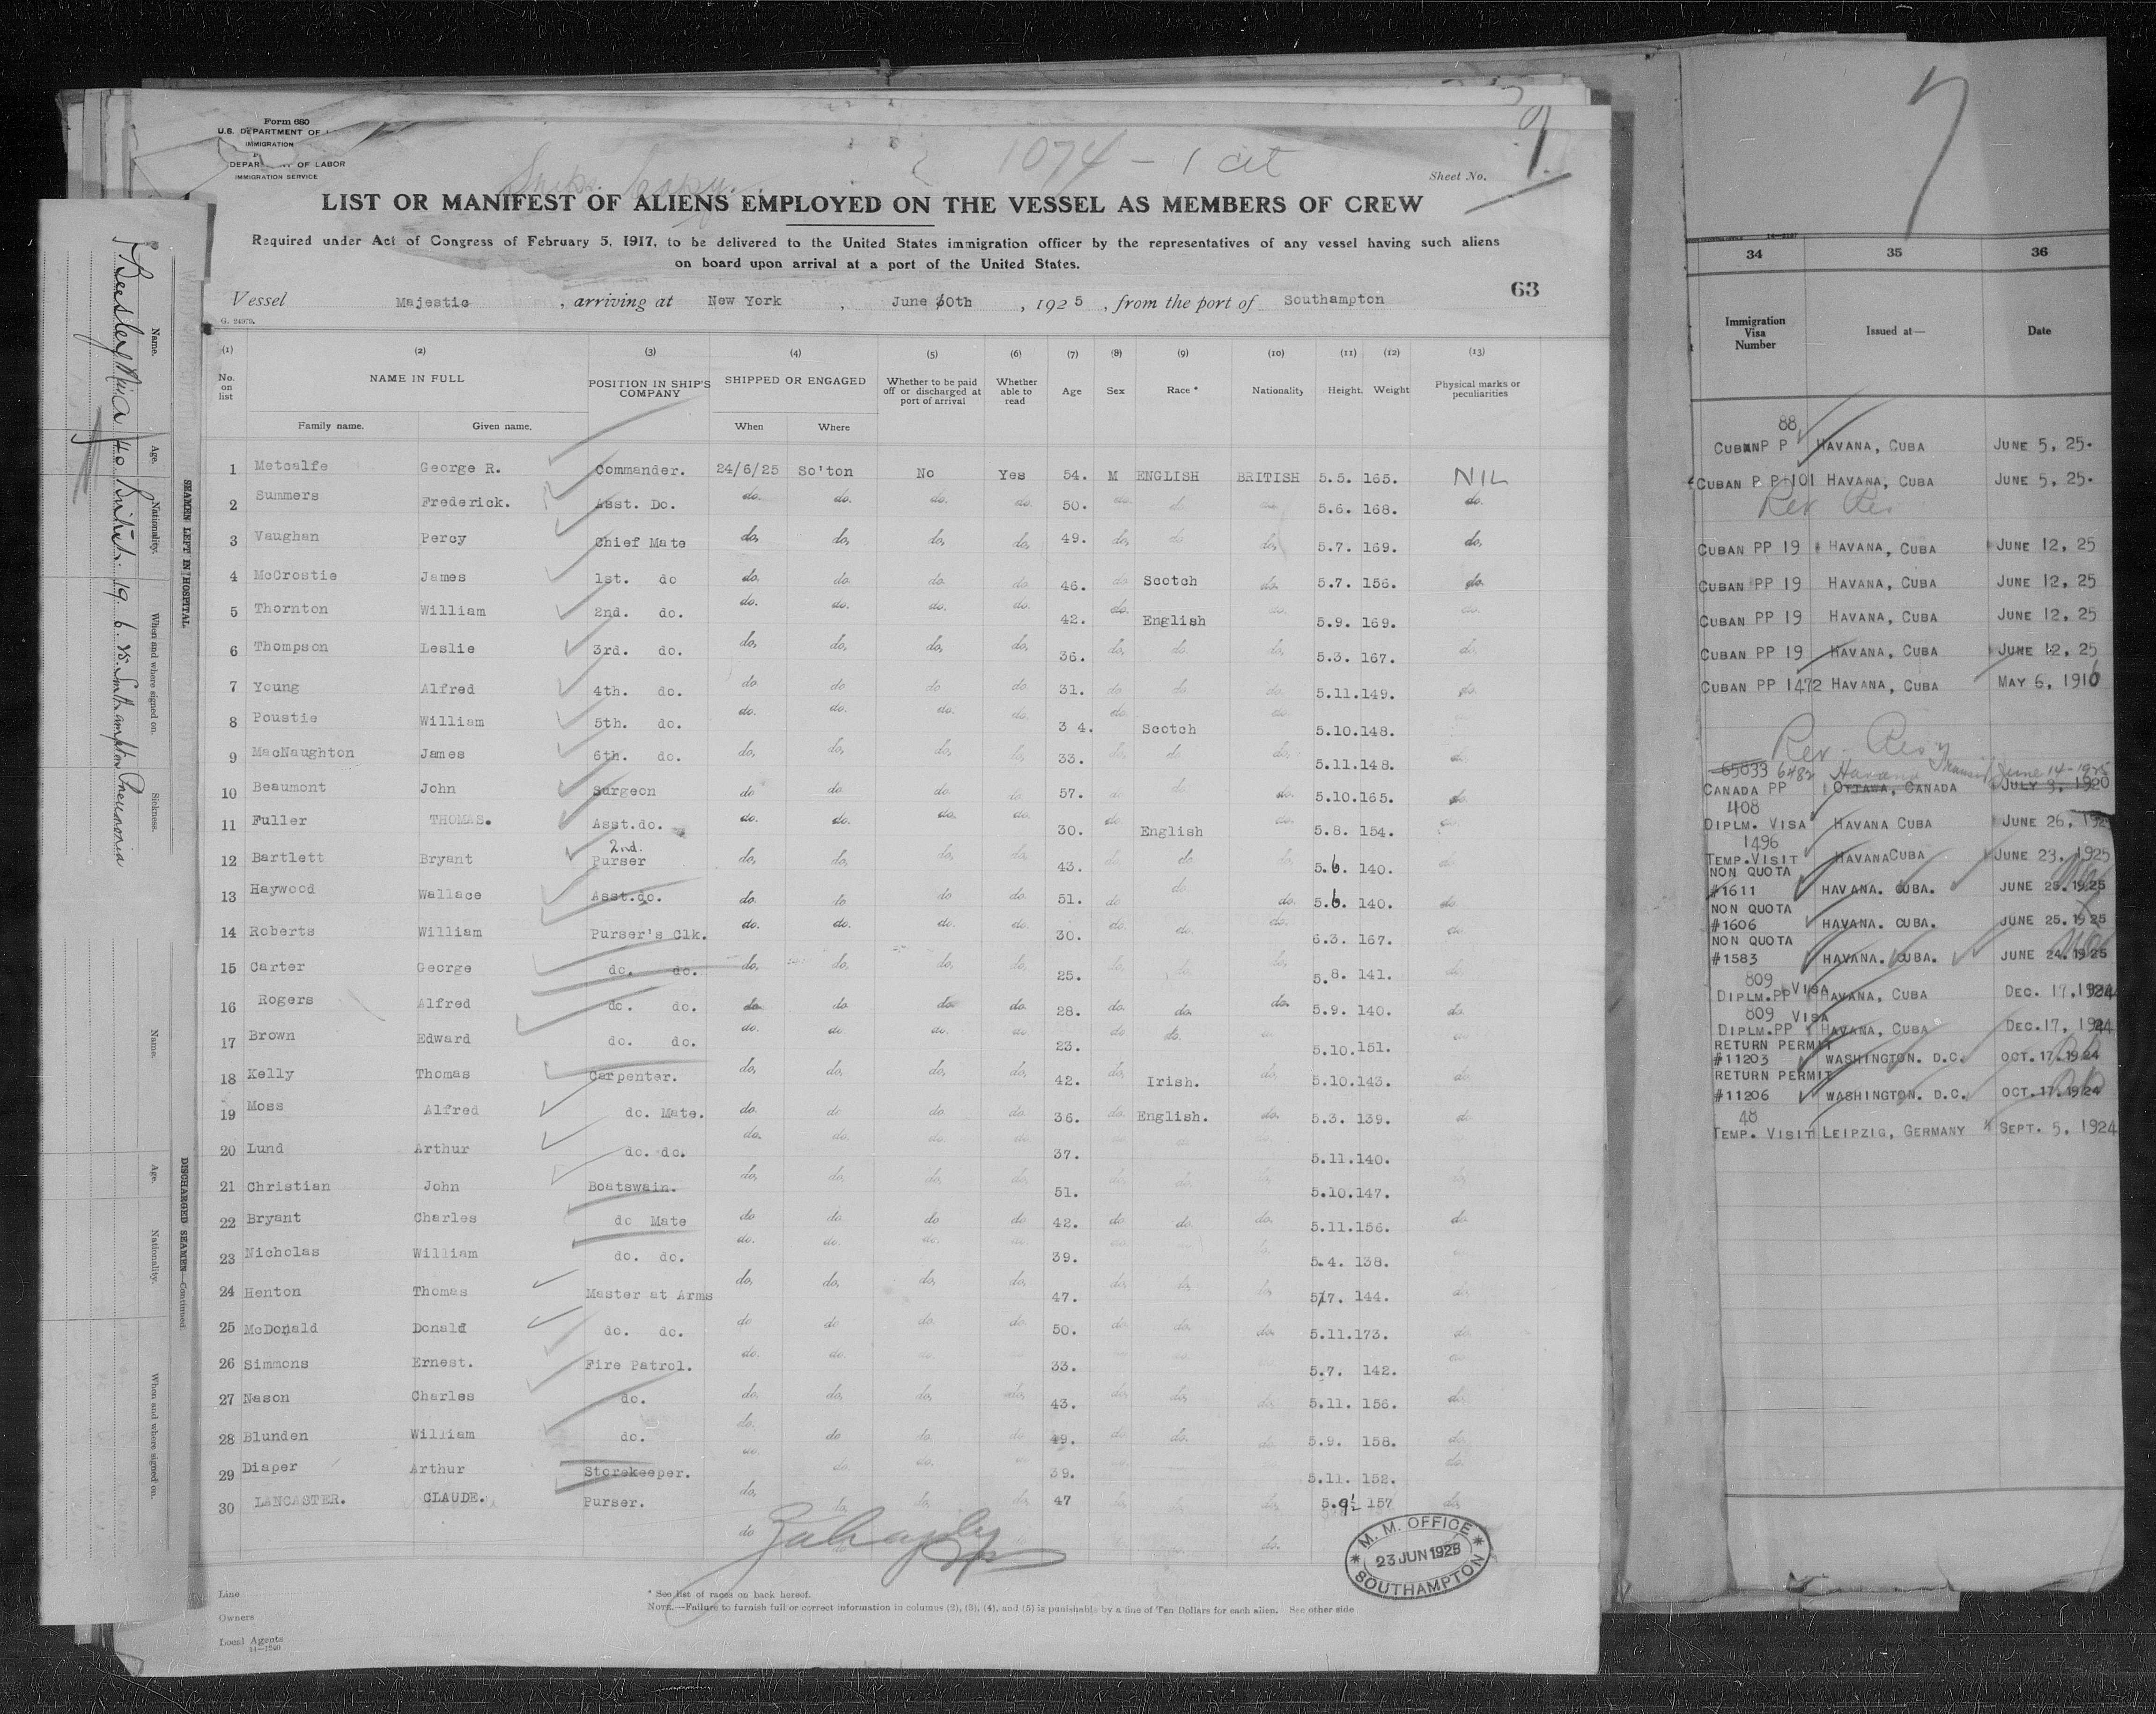 Form 680
U.S. DEPARTMENT OF
IMMIGRATION
DEPAR OF LABOR
IMMIGRATION SERVICE
1074 - 1 cit
Sheet No. 1.
LIST OR MANIFEST OF ALIENS EMPLOYED ON THE VESSEL AS MEMBERS OF CREW
Required under Act of Congress of February 5, 1917, to be delivered to the United States immigration officer by the representatives of any vessel having such aliens
on board upon arrival at a port of the United States.
63
Vessel Majestic, arriving at New York, June 30th, 1925, from the port of Southampton
(1) (2) (3) (4) (5) (6) (7) (8) (9) (10) (11) (12) (13)
No. on list NAME IN FULL POSITION IN SHIP'S COMPANY SHIPPED OR ENGAGED Whether to be paid off or discharged at port of arrival Whether able to read Age Sex Race * Nationality Height. Weight Physical marks or peculiarities
Family name. Given name. When Where
1 Metcalfe George R. Commander. 24/6/25 So'ton No Yes 54. M ENGLISH BRITISH 5.5. 165. NIL
2 Summers Frederick. Asst. Do. do. do. do. do. 50. do. do. do. 5.6. 168. do.
3 Vaughan Percy Chief Mate do. do. do. do. 49. do. do. do. 5.7. 169. do.
4 McCrostie James 1st. do do. do. do. do. 46. do. Scotch do. 5.7. 156. do.
5 Thornton William 2nd. do. do. do. do. do. 42. do. English do. 5.9. 169. do.
6 Thompson Leslie 3rd. do. do. do. do. do. 36. do. do. do. 5.3. 167. do.
7 Young Alfred 4th. do. do do do do. 31. do. do. do. 5.11. 149. do.
8 Poustie William 5th. do. do. do. do. do. 34. do. Scotch do. 5.10. 148.
9 MacNaughton James 6th. do. do. do. do. do. 33. do. do. do. 5.11. 148. do.
10 Beaumont John Surgeon do do do. do. 57. do do. do. 5.10. 165. do.
11 Fuller THOMAS. Asst.do. do. do. do. do. 30. do. English do. 5.8. 154. do.
12 Bartlett Bryant 2nd. Purser do. do. do. do. 43. do. do. do. 5.6. 140. do.
13 Haywood Wallace Asst.do. do. do do do. 51. do do. do. 5.6. 140. do.
14 Roberts William Purser's Clk. do. do. do. do. 30. do. do. do. 6.3. 167. do.
15 Carter George do. do. do. do. do. do. 25. do. do. do. 5.8. 141. do.
16 Rogers Alfred do. do. do do do. do. 28. do. do. do. 5.9. 140. do.
17 Brown Edward do. do. do. do do. do. 23. do. do. 5.10. 151. do.
18 Kelly Thomas Carpenter. do. do. do. do. 42. do. Irish. do. 5.10. 143. do.
19 Moss Alfred do. Mate. do. do do. do. 36. do. English. do. 5.3. 139. do.
20 Lund Arthur do. do. do. do. do. do. 37. 5.11. 140.
21 Christian John Boatswain. do. do. do. do. 51. do. do. do. 5.10. 147.
22 Bryant Charles do Mate do do. do do 42. do do. do. 5.11. 156. do.
23 Nicholas William do. do. do. do. do. 39. 5.4. 138.
24 Henton Thomas Master at Arms do. do. do. do. 47. do. do. do. 5.7. 144. do.
25 McDonald Donald do. do. do do do. do. 50. do. do. do. 5.11. 173. do.
26 Simmons Ernest. Fire Patrol. do. do. do. 33. 5.7. 142. do.
27 Nason Charles do. do. do. do. do. 43. do. do. do. 5.11. 156. do.
28 Blunden William do. do. do do. do 49. do do. do. 5.9. 158. do.
29 Diaper Arthur Storekeeper. do. do. do. 39. 5.11. 152. do.
30 LANCASTER. CLAUDE. Purser. do. do. do. do. 47 do. do. do. 5.9½ 157 do.
M. M. OFFICE
23 JUN 1925
SOUTHAMPTON
Line
Owners
Local Agents
* See list of races on back hereof.
NOTE.—Failure to furnish full or correct information in columns (2), (3), (4), and (5) is punishable by a fine of Ten Dollars for each alien. See other side
SEAMEN LEFT IN HOSPITAL
Name. Age. Nationality. When and where signed on. Sickness.
Beesley 40 British 19.6.25 Southampton Pneumonia
DISCHARGED SEAMEN—Continued
Name. Age. Nationality. When and where signed on.
7
34 35 36
Immigration Visa Number Issued at— Date
88
CUBAN P P HAVANA, CUBA JUNE 5, 25.
CUBAN P P 101 HAVANA, CUBA JUNE 5, 25.
CUBAN PP 19 HAVANA, CUBA JUNE 12, 25
CUBAN PP 19 HAVANA, CUBA JUNE 12, 25
CUBAN PP 19 HAVANA, CUBA JUNE 12, 25
CUBAN PP 19 HAVANA, CUBA JUNE 12, 25
CUBAN PP 1472 HAVANA, CUBA MAY 6, 1916
65033 6482 Havana Transit June 14-1925
CANADA PP OTTAWA, CANADA JULY 9, 1920
408
DIPLM. VISA HAVANA CUBA JUNE 26, 192
1496
TEMP. VISIT HAVANA CUBA JUNE 23, 1925
NON QUOTA
#1611 HAVANA. CUBA. JUNE 25.1925
NON QUOTA
#1606 HAVANA. CUBA. JUNE 25.1925
NON QUOTA
#1583 HAVANA. CUBA. JUNE 24.1925
809 VISA
DIPLM.PP HAVANA, CUBA DEC. 17, 1924
809 VISA
DIPLM.PP HAVANA, CUBA DEC.17, 1924
RETURN PERMIT
#11203 WASHINGTON. D.C. OCT.17.1924
RETURN PERMIT
#11206 WASHINGTON. D.C. OCT.17.1924
48
TEMP. VISIT LEIPZIG, GERMANY SEPT. 5, 1924